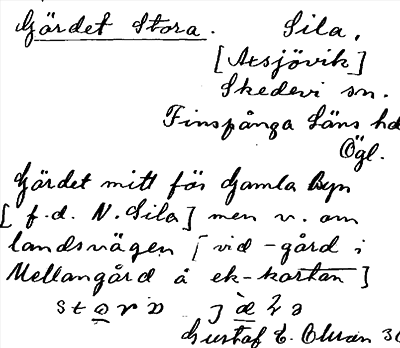 Gärdet Stora. Sila,
[Axsjövik]
Skedevi sn.
Finspånga Läns hd
Ögl.
Gärdet mitt för Gamla Byn
[f.d. N. Sila] men v. om
landsvägen [vid -gård i
Mellangård å ek-kartan]
Gustaf E.